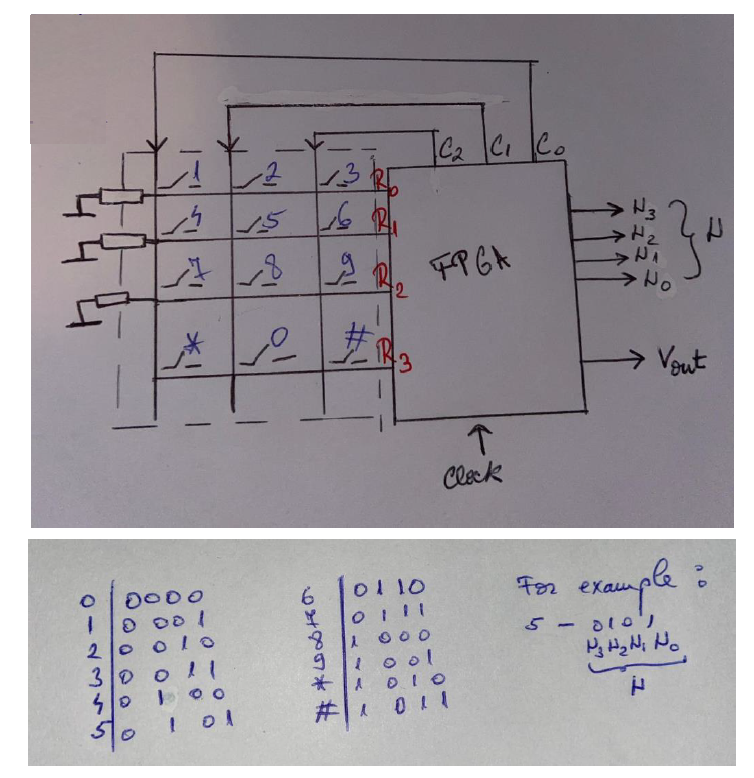 C2 C1 C0
1 2 3 R0
4 5 6 R1
7 8 9 R2
* 0 # R3
FPGA
N3
N2
N1
N0
N
Vout
Clock
0 0000
1 0001
2 0010
3 0011
4 0100
5 0101
6 0110
7 0111
8 1000
9 1001
* 1010
# 1011
For example :
5 - 0101
N3 N2 N1 N0
N